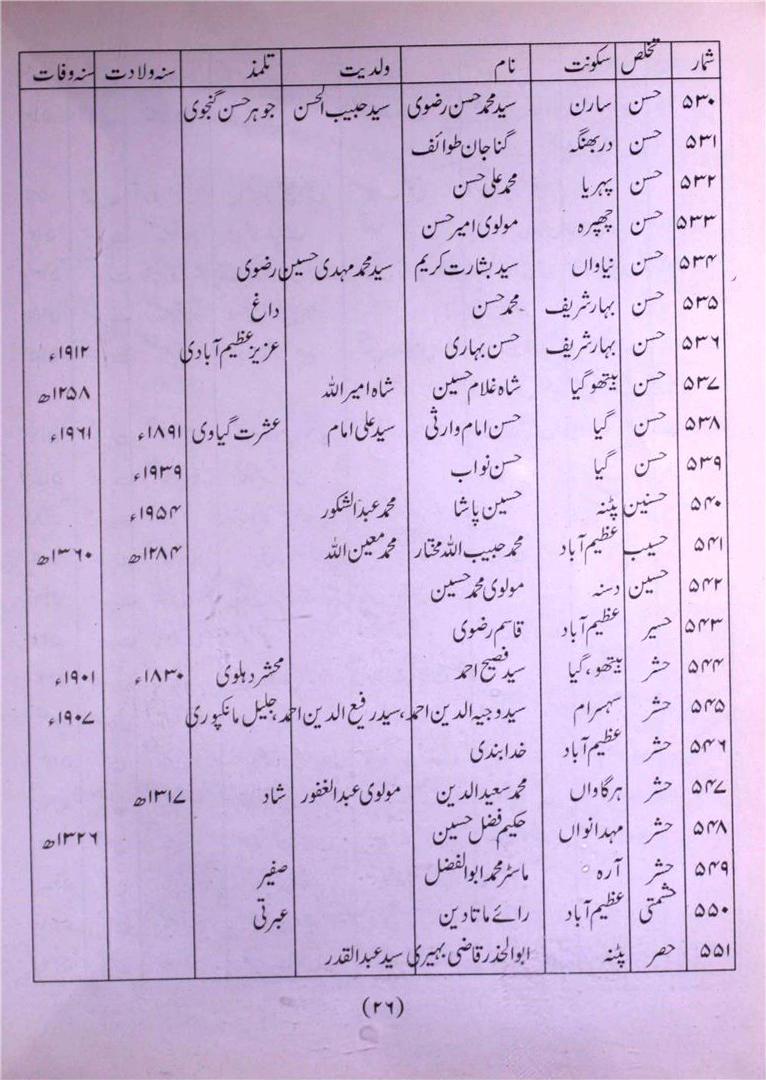 شمار تخلص سکونت نام ولدیت تلمذ سنہ ولادت سنہ وفات
۵۳۰ حسن سارن سید محمد حسن رضوی سید حبیب الحسن جوہر حسن گنجوی
۵۳۱ حسن دربھنگہ گنا جان طوائف
۵۳۲ حسن پہریا محمد علی حسن
۵۳۳ حسن چھپرہ مولوی امیر حسن
۵۳۴ حسن نیاواں سید بشارت کریم سید محمد مہدی حسین رضوی
۵۳۵ حسن بہار شریف محمد حسن داغ
۵۳۶ حسن بہار شریف حسن بہاری عزیز عظیم آبادی ۱۹۱۲ء
۵۳۷ حسن بیتھو گیا شاہ غلام حسین شاہ امیر اللہ ۱۲۵۸ھ
۵۳۸ حسن گیا حسن امام وارثی سید علی امام عشرت گیاوی ۱۸۹۱ء ۱۹۶۱ء
۵۳۹ حسن گیا حسن نواب ۱۹۳۹ء
۵۴۰ حسنین پٹنہ حسین پاشا محمد عبدالشکور ۱۹۵۴ء
۵۴۱ حسیب عظیم آباد محمد حبیب اللہ مختار محمد معین اللہ ۱۲۸۴ھ ۱۳۶۰ھ
۵۴۲ حسین دسنہ مولوی محمد حسین
۵۴۳ حسیر عظیم آباد قاسم رضوی
۵۴۴ حشر بیتھو، گیا سید فصیح احمد محشر دہلوی ۱۸۳۰ء ۱۹۰۱ء
۵۴۵ حشر سہسرام سید وجیہ الدین احمد، سید رفیع الدین احمد، جلیل مانکپوری ۱۹۰۷ء
۵۴۶ حشر عظیم آباد خدا بندی
۵۴۷ حشر ہرگاواں محمد سعید الدین مولوی عبدالغفور شاد ۱۳۱۷ھ
۵۴۸ حشر مہدانواں حکیم فضل حسین ۱۳۲۶ھ
۵۴۹ حشر آرہ ماسٹر محمد ابوالفضل صفیر
۵۵۰ حشمتی عظیم آباد رائے ماتادین عبرتی
۵۵۱ حصر پٹنہ قاضی بہیری سید عبدالقدر
(۲۶)